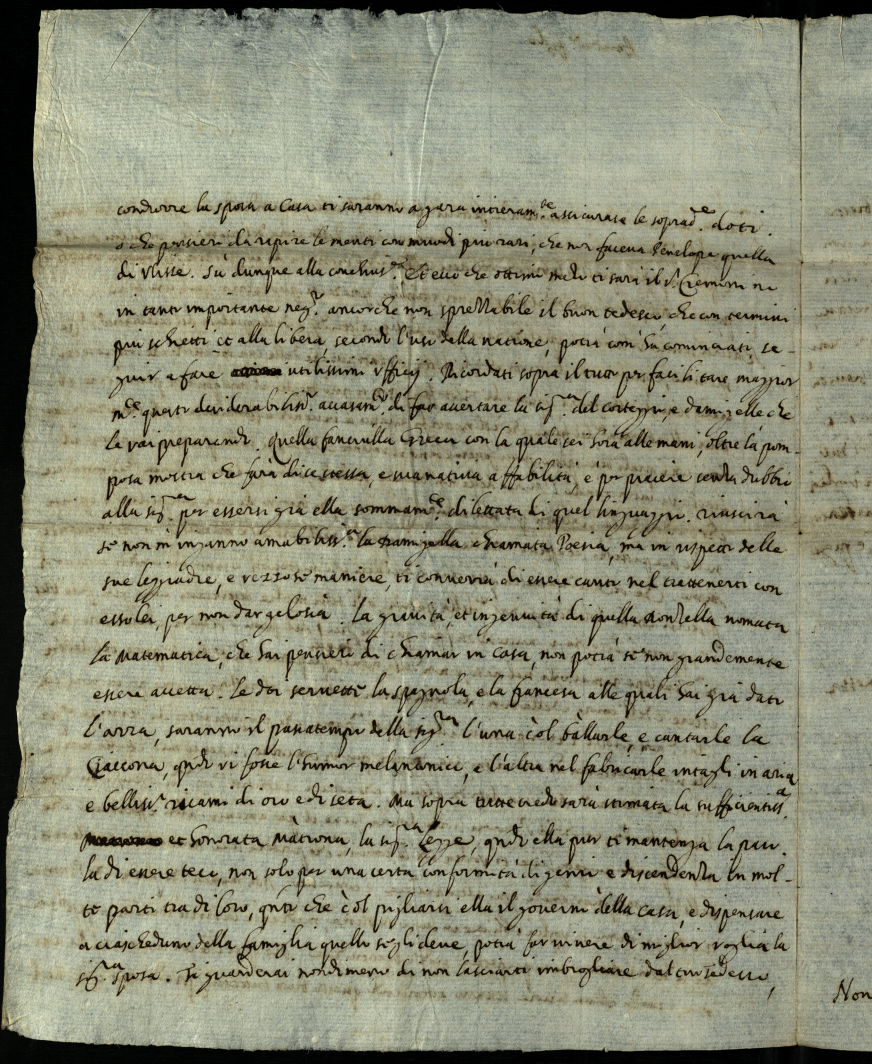 condurre la sposa a Casa ti saranno a gara intieram.te assicurate le soprad.e doti.
o che pensieri da rapire le menti con muodi piu rari, che non faceva Penelope quella
di Ulisse. Sù dunque alla conchius.e, Et ecco che ottimo mezo ti sarà il s.r Cremoni in
in tanto importante neg.o ancorche non sprezzabile il buon tedesco, che con termini
piu schietti et alla libera, secondo l'uso della natione, potrà com' hà cominciato, se-
guir a fare utilissimi ufficij. Ricordati sopra il tutto per facilitare maggior
m.te questo desiderabiliss.o accasam.to di far avertare la sig.ra del corteggio, e damigelle che
le vai preparando. Quella fanciulla Greca con la quale sei hora alle mani, oltre la pom-
posa mostra che farà di se stessa, e sua nativa affabilità, è per piacere senza dubbio
alla sig.ra per essersi già ella sommam.te dilettata di quel linguaggio. riuscirà
se non m'inganno amabiliss.a la damigella chiamata Poesia, ma in rispetto delle
sue leggiadre, e vezzose maniere, ti converrà di essere cauto nel trattenerti con
essolei, per non dar gelosia. La gravità, et ingenuità di quella donzella nomata
la Matematica, che hai pensiero di chiamar in casa, non potrà se non grandemente
essere accetta. Le doi servette la spagnola, e la francesa alle quali hai già dato
l'arra, saranno il passatempo della sig.ra l'una còl ballarle, e cantarle la
Ciaccona, qndo vi fosse l'humor melanconico, e l'altra nel fabricarle intagli in aria
e belliss.i ricami di oro e di seta. Ma sopra tutte credo sarà stimata la sufficientiss.a
et honorata Matrona, la sig.ra Legge, qndo ella pur ti mantenga la paro-
la di essere teco, non solo per una certa conformità di genio e discendenza in mol-
te parti tra di loro, qnto che còl pigliarsi ella il governo della casa, e dispensare
a ciascheduno della famiglia quello se gli deve, potrà far vivere di miglior voglia la
sig.ra sposa. Ti guarderai nondimeno di non lasciarti imbrogliare dal tuo Tedesco,
Non